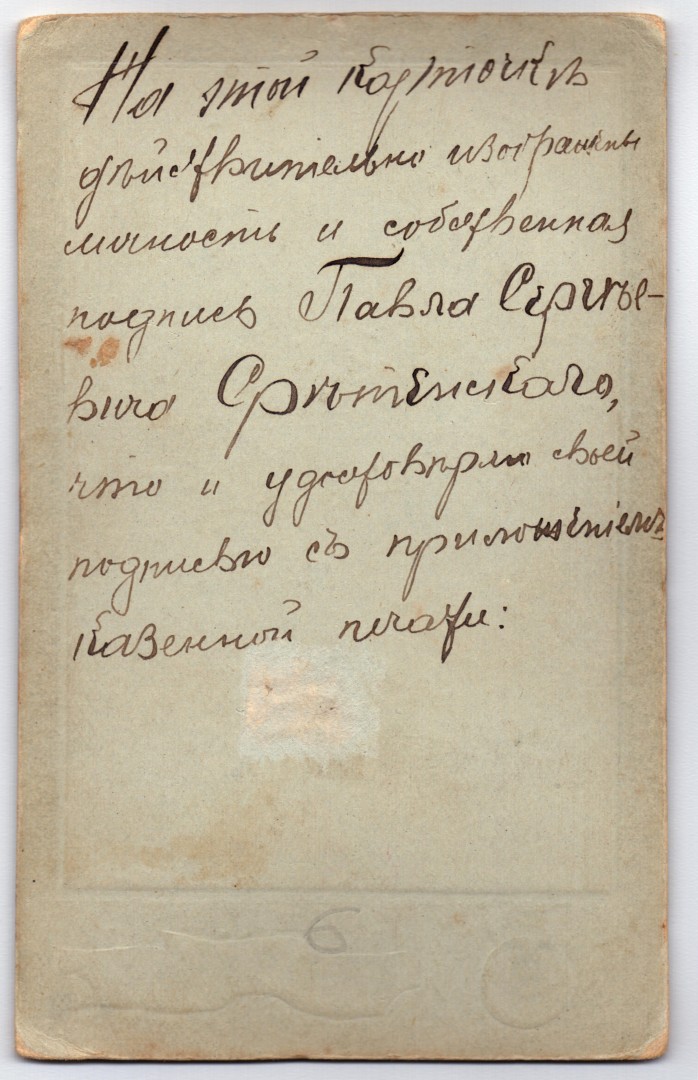 На этой карточкѣ
дѣйствительно изображены
личность и собственная
подпись Павла Сергѣе-
вича Срѣтенскаго,
что и удостовѣряю своей
подписью съ приложенiемъ
казенной печати:
6